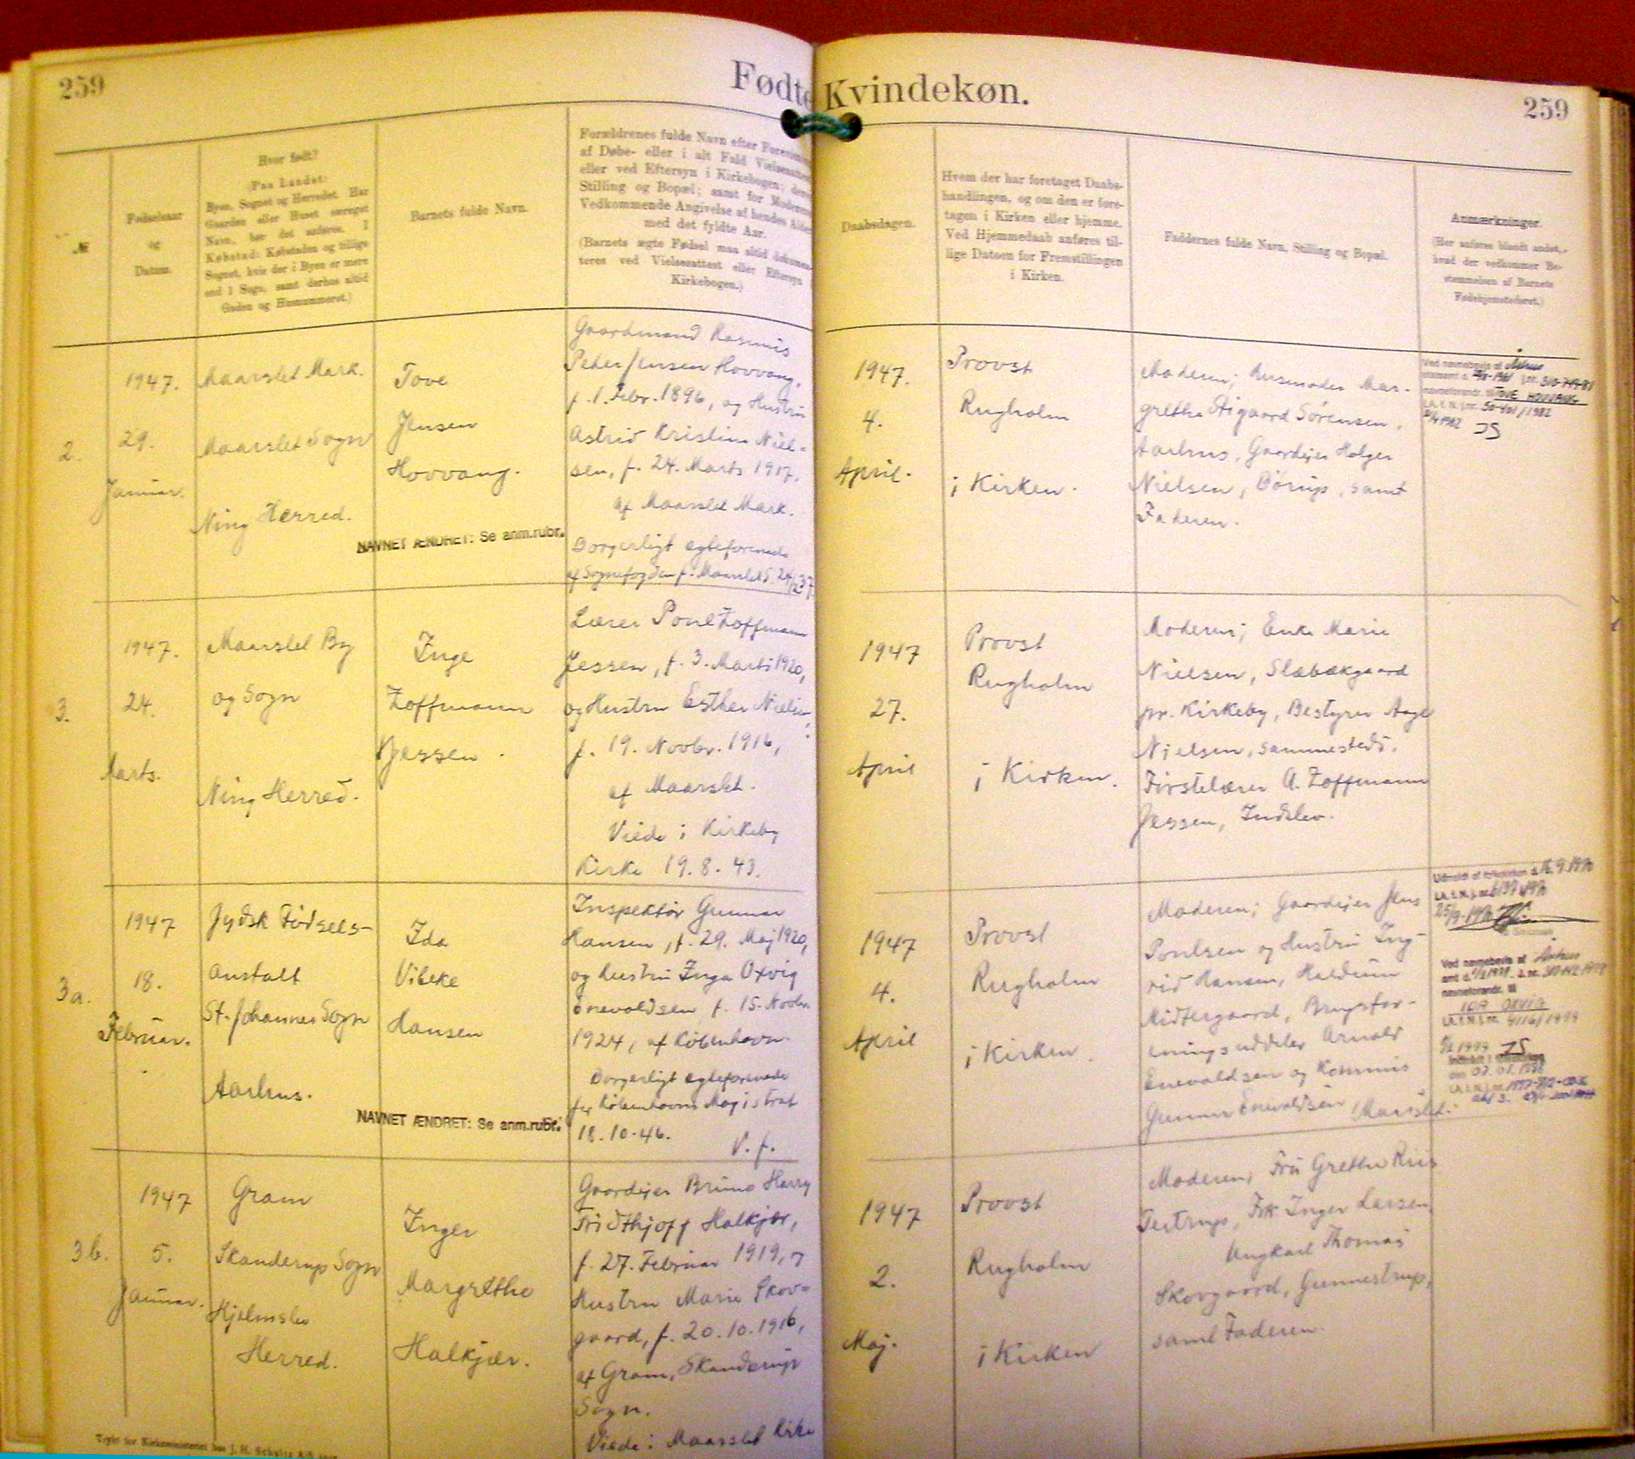 259
Fødte
Kvindekøn.
259
№
Fødselsaar
og
Datum.
Hvor født?
(Paa Landet:
Byen, Sognet og Herredet. Har
Gaarden eller Huset særeget
Navn, bør det anføres. I
Købstad: Købstaden og tillige
Sognet, hvis der i Byen er mere
end 1 Sogn, samt derhos altid
Gaden og Husnummeret.)
Barnets fulde Navn.
Forældrenes fulde Navn efter
af Døbe- eller i alt Fald
eller ved Eftersyn i Kirkebogen;
Stilling og Bopæl; samt for
Vedkommende Angivelse af hendes
med det fyldte Aar.
(Barnets ægte Fødsel maa altid
teres ved Vielsesattest eller Eftersyn
Kirkebogen.)
Daabsdagen.
Hvem der har foretaget Daabs-
handlingen, og om den er fore-
tagen i Kirken eller hjemme.
Ved Hjemmedaab anføres til-
lige Datoen for Fremstillingen
i Kirken.
Faddernes fulde Navn, Stilling og Bopæl.
Anmærkninger.
(Her anføres blandt andet,
hvad der vedkommer Be-
stemmelsen af Barnets
Fødehjemstedsret.)
2.
1947.
29.
Januar.
Maarslet Mark.
Maarslet Sogn
Ning Herred.
Tove
Jensen
Hovvang.
NAVNET ÆNDRET: Se anm.rubr.
Gaardmand Rasmus
Peder Jensen Hovvang,
f. 1. Febr. 1896, og Hustru
Astrid Kristine Niel-
sen, f. 24. Marts 1917.
af Maarslet Mark.
Borgerligt ægteforenede
af Sognefogden f. Maarslet S.
1947.
4.
April.
Provst
Rugholm
i Kirken.
Moderen; Husmoder Mar-
grethe Stigaard Sørensen,
Aarhus, Gaardejer Holger
Nielsen, Børup, samt
Faderen.
Ved navnebevis af Århus
navneforandr. til TOVE HOVVANG
JS
3.
1947.
24.
Marts.
Maarslet By
og Sogn
Ning Herred.
Inge
Hoffmann
Jessen.
Lærer Poul Hoffmann
Jessen, f. 3. Marts 1920,
og Hustru Esther Nielsen,
f. 19. Novbr. 1916,
af Maarslet.
Viede i Kirkeby
Kirke 19.8.43.
1947
27.
April
Provst
Rugholm
i Kirken.
Moderen; Enke Marie
Nielsen, Slæbækgaard
pr. Kirkeby, Bestyrer Aage
Nielsen, sammesteds.
Førstelærer A. Hoffmann
Jessen, Indslev.
3a.
1947
18.
Februar.
Jydsk Fødsels-
anstalt
St. Johannes Sogn
Aarhus.
Ida
Vibeke
Hansen
NAVNET ÆNDRET: Se anm.rubr.
Inspektør Gunnar
Hansen, f. 29. Maj 1920,
og Hustru Inga Oxvig
Enevoldsen f. 15. Novbr.
1924, af København.
Borgerligt ægteforenede
før Københavns Magistrat
18.10.46.
V. f.
1947
4.
April
Provst
Rugholm
i Kirken.
Moderen; Gaardejer Jens
Poulsen og Hustru Ing-
rid Hansen,
Midtergaard, Brugsfor-
eningsuddeler Arnold
Enevoldsen og Kommis
Gunnar Enevoldsen, Maarslet.
Udmeldt af folkekirken d. 16.9.1970
Ved navnebevis af Århus
navneforandr. til
IDA OXVIG
JS
3b.
1947
5.
Januar.
Gram
Skanderup Sogn
Hjelmslev
Herred.
Inger
Margrethe
Halkjær.
Gaardejer Bruno Harry
Fridthjoff Halkjær,
f. 27. Februar 1919, og
Hustru Marie Skov-
gaard, f. 20.10.1916,
af Gram, Skanderup
Sogn.
Viede i Maarslet Kirke
1947
2.
Maj.
Provst
Rugholm
i Kirken
Moderen, Fru Grethe Riis
Testrup, Frk Inger Larsen,
Ungkarl Thomas
Skovgaard, Gunnestrup,
samt Faderen.
Trykt for Kirkeministeriet hos J. H. Schultz A/S